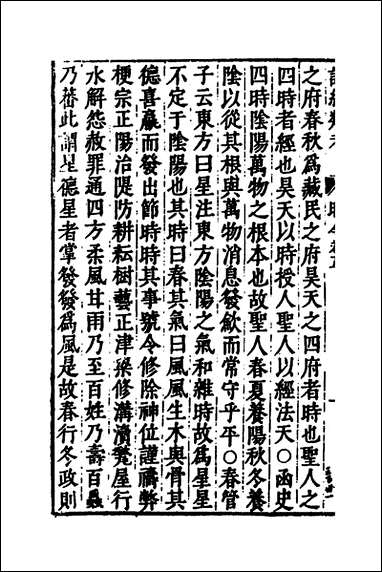 之府春秋爲藏民之府昊天之四府者時也聖人之
四時者經也昊天以時授人聖人以經法天〇函史
四時陰陽萬物之根本也故聖人春夏養陽秋冬養
陰以從其根與萬物消息發歛而常守乎平〇春管
子云東方曰星注東方陰陽之氣和雜時故爲星星
不定于陰陽也其時曰春其氣曰風風生木與骨其
德喜羸而發出節時時其事號令修除神位謹禱弊
梗宗正陽治隄防耕耘樹藝正津梁修溝瀆甃屋行
水解怨赦罪通四方柔風甘雨乃至百姓乃壽百蟲
乃蕃此謂星德星者掌發發爲風是故春行冬政則